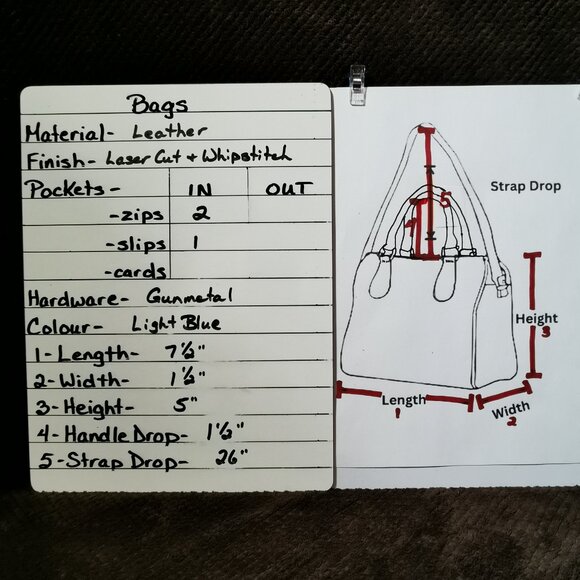 Bags
Material- Leather
Finish- Laser Cut + Whipstitch
Pockets- IN OUT
-zips 2
-slips 1
-cards
Hardware- Gunmetal
Colour- Light Blue
1-Length- 7½"
2-Width- 1½"
3-Height- 5"
4-Handle Drop- 1½"
5-Strap Drop- 26"
Strap Drop
5
4
Height
3
Length
1
Width
2